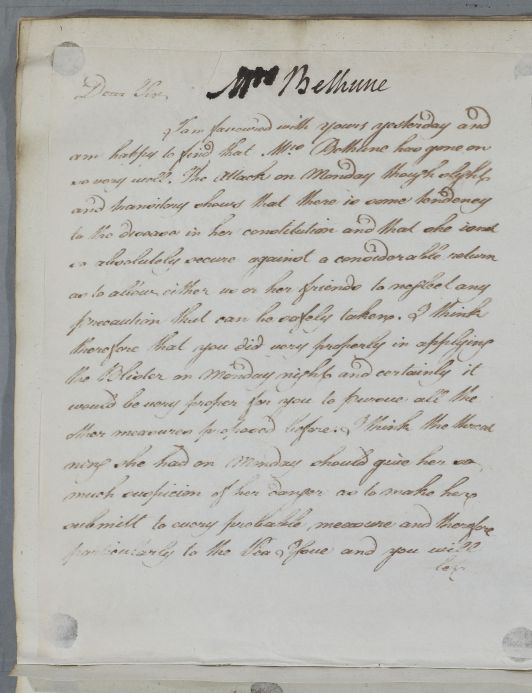 Mrs Bethune
Dear Sir,
I am favoured with yours yesterday and
am happy to find that Mrs. Bethune has gone on
so very well. The Attack on Monday though slight
and transitory shows that there is some tendency
to the disease in her constitution and that she is not
so absolutely secure against a considerable return
as to allow either us or her friends to neglect any
precaution that can be safely taken. I think
therefore that you did very properly in applying
the Blister on Monday night and certainly it
would be very proper for you to pursue all the
other measures proposed before. I think the threat
ning she had on Monday should give her so
much suspicion of her danger as to make her
submitt to every probable measure and therefore
particularly to the and you will